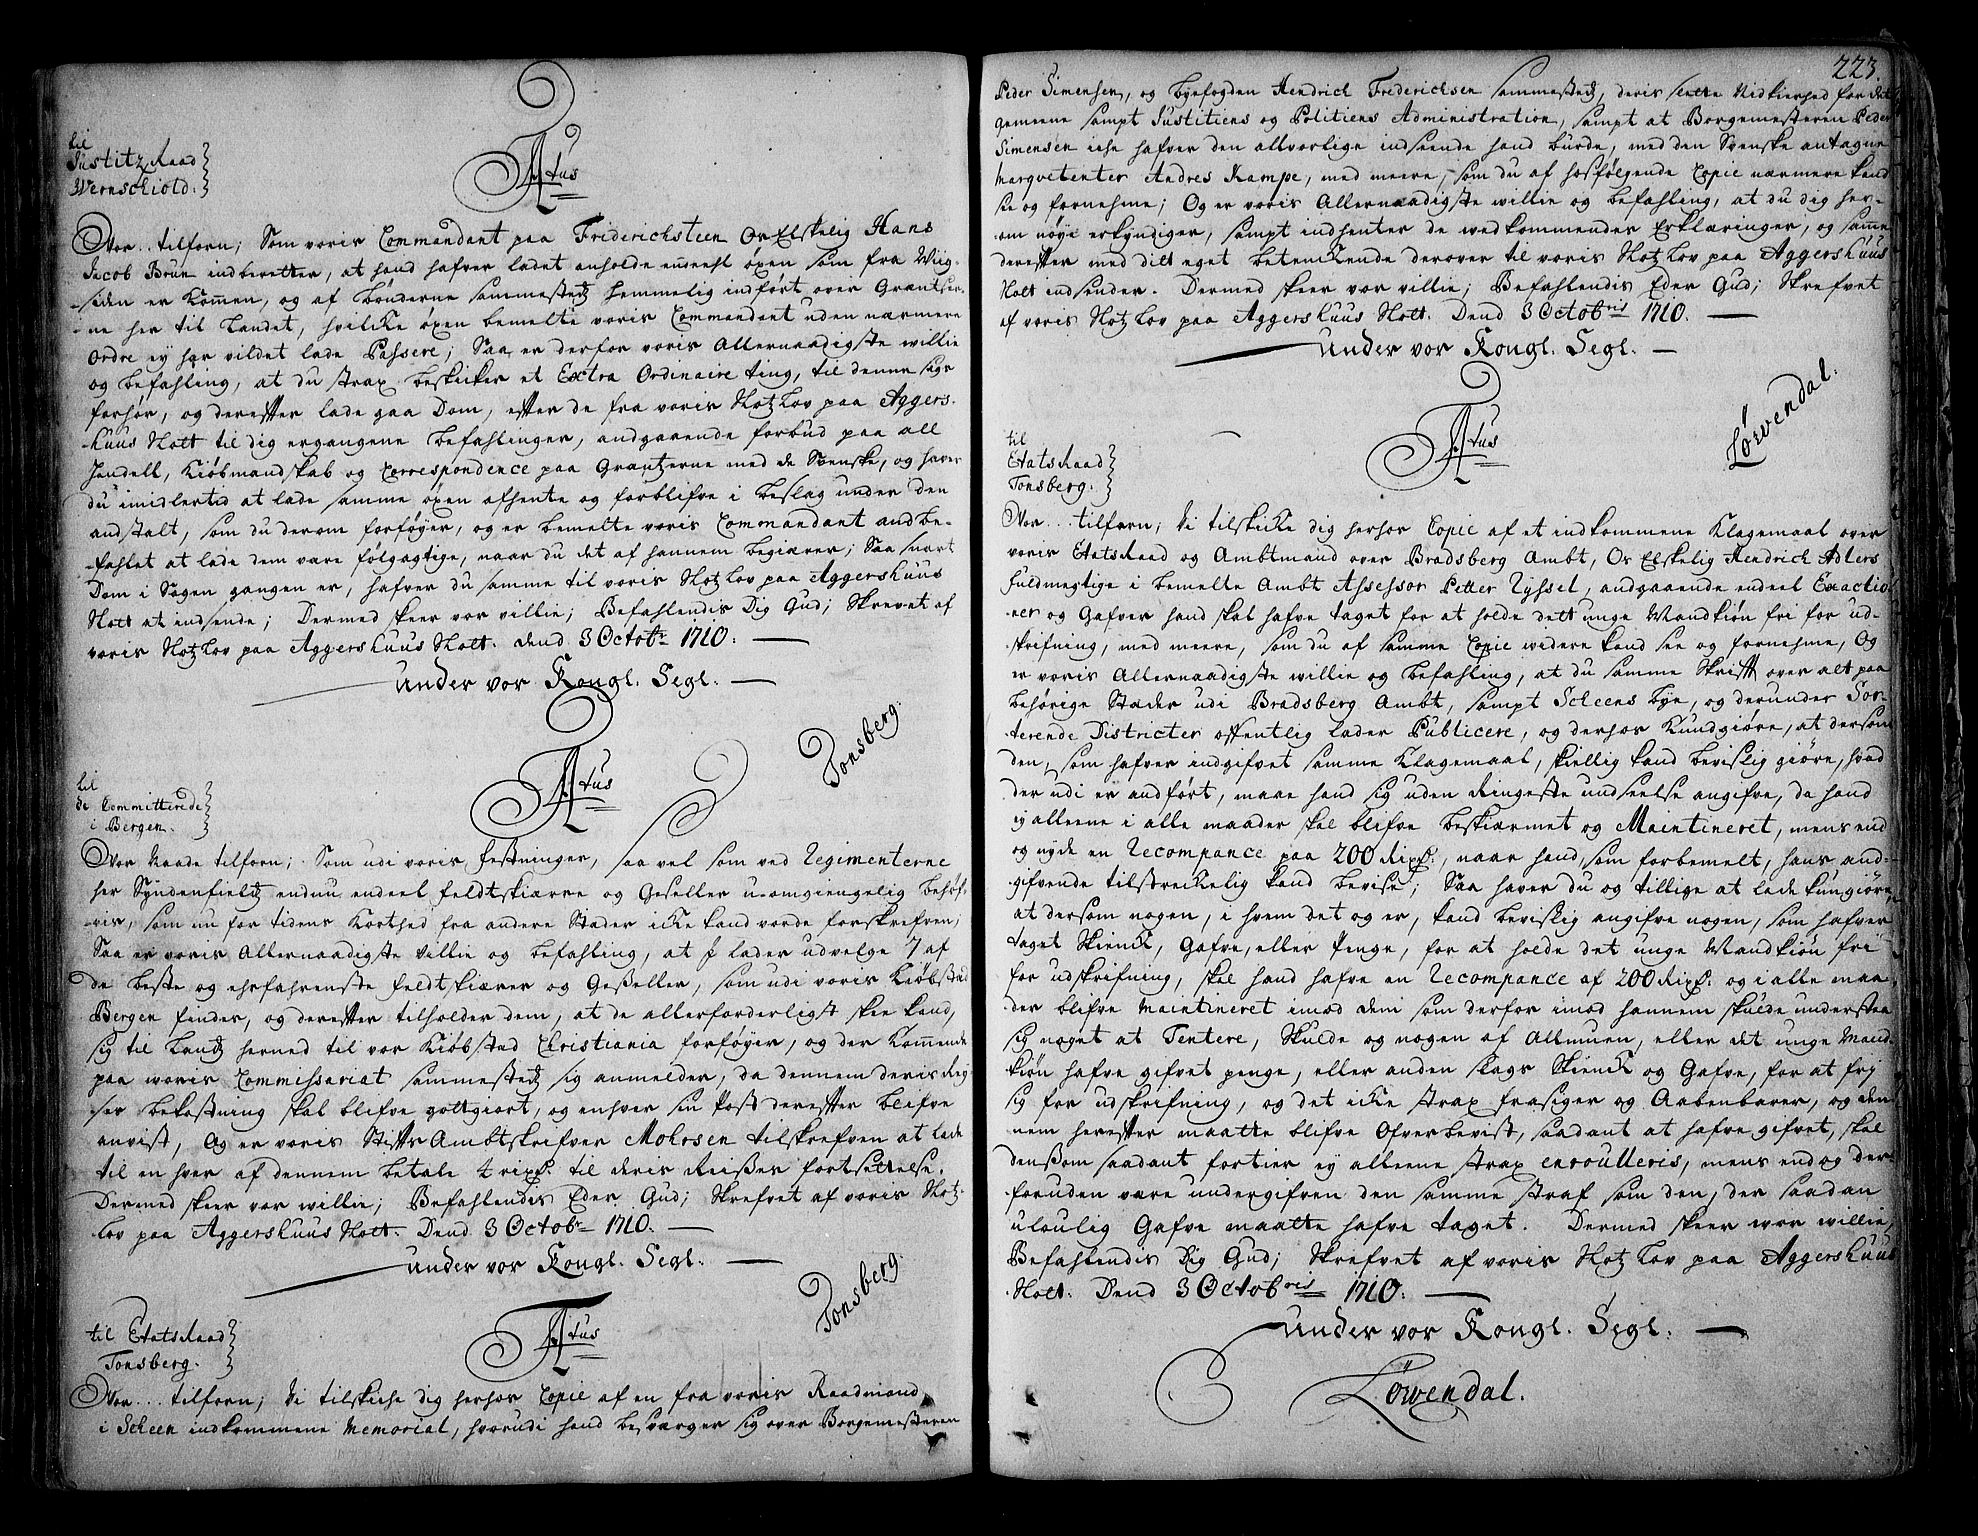 til
Justitz Raad
Wernschiold.
F 4tus
Vor... tilforn; Som voris Commandant paa Friderichsteen Os Elskelig Hans
Jacob Brun indberetter, at hand hafver ladet anholde eneehl öxen som fra Wiig-
siden er kommen, og af bönderne sammestedz hemmelig indfört over Grantser-
ne her til Landet, hvilke öxen bemelte voris Commandant uden nærmere
Ordre ey har vildet lade Passere; Saa er derfor voris Allernaadigste willie
og befahling, at du strax beskicker et Extra Ordinaire ting, til denne sags
forhör, og derefter lade gaa Dom, efter de fra voris Slotz Lov paa Aggers-
huus Slott til dig ergangene befahlinger, andgaaende forbud paa all
handell, kiöbmandskab og Correspondence paa Grantzerne med de Svenske, og haver
du imidlertid at lade samme öxen afhente og forblifve i beslag under den
andstalt, som du derom forföyer, og er bemelte voris Commandant andbe-
fahlet at lade dem være fölgagtige, naar du det af hannem begiærer; Saa snart
Dom i Sagen gangen er, hafver du samme til voris Slotz Lov paa Aggershuus
Slott at indsende; Dermed skeer vor villie; Befahlendis Dig Gud; Skrevet af
voris Slotz Lov paa Aggershuus Slott. dend 3 Octobr 1710.
under vor Kongl. Segl.
Tonsberg.
til
de Committerede
i Bergen.
Vor Naade tilforn; Som udi voris festninger, saa vel som ved Regimenterne
her Syndenfieltz endnu endeel feldtskiærre og Geseller u-omgiengelig behöf-
vis, som nu for tidens korthed fra andere Stæder icke kand vorde forskrefven;
Saa er voris Allernaadigste Villie og befahling, at I lader udvelge 7 af
de beste og ehrfahrenste feldtskiærer og Geseller, som udi voris Kiöbsted
Bergen findes, og derefter tilholder dem, at de allerforderligst skee kand,
sig til Landz herned til vor Kiöbstad Christiania forföyer, og der kommende
paa woris Commissariat sammestedz sig anmelder, da dennem deris Rey-
ses bekostning skal blifve gottgiort, og enhver sin Post derefter blifve
anvist, Og er voris Stifts Ambtskrifver Mohrsen tilskrefven at lade
til en hver af dennem betale 4 rixdr. til deris Reises fortsettelse.
Dermed skeer vor willie; Befahlendis Eder Gud; Skrefvet af voris Slotz-
Lov paa Aggershuus Slott. Dend 3 Octobr 1710.
under vor Kongl. Segl.
Tonsberg.
til EtatsRaad
Tonsberg.
F 4tus
Vor... tilforn; Vi tilskicke dig herhos Copie af en fra voris Raadmand
i Scheen indkommene Memorial, hvorudi hand besværger sig over Borgemesteren
223.
Peder Simensen, og byefogden Hendrich Frederichsen sammestedz, deris slette Nidkierhed for det
gemeene sampt Justitiens og Politiens Administration, sampt at Borgemesteren Peder
Simensen icke hafver den allvorlige indseende hand burde, med den Svenske antagne
Marqvetenter Andres Kampe, med meere, som du af hosfölgende Copie nærmere kand
see og fornehme; Og er voris Allernaadigste willie og befahling, at du dig her-
om nöyi erkyndiger, sampt indhenter de wedkommendes Erklæringer, og samme
derefter med dit eget betenckende derover til voris Slotz Lov paa Aggershuus
Slott indsender. Dermed skeer vor villie; Befahlendis Eder Gud; Skrefvet
af voris Slotz Lov paa Aggershuus Slott. Dend 3 Octobris 1710.
under vor Kongl. Segl.
Löwendal.
til
EtatsRaad
Tonsberg.
F 4tus
Vor... tilforn; Vi tilskicke dig herhos Copie af et indkommene Klagemaal over
voris EtatsRaad og Ambtmand over Bradsberg Ambt, Os Elskelig Hendrich Adlers
fuldmegtige i bemelte Ambt Assessor Petter Zyssel, andgaaende endeel Exactio-
ner og Gafver hand skal hafve taget for at holde dett unge Mandkiön fri for ud-
skrifning, med meere, som du af samme Copie widere kand see og fornehme, Og
er voris Allernaadigste willie og befahling, at du samme Skrift over alt paa
behörige Stæder udi Bradsberg Ambt, sampt Scheens bye, og derunder Sor-
terende Districter offentlig lader Publicere, og derhos kundgiöre, at dersom
den, som hafver indgifvet samme Klagemaal, skiellig kand bevislig giöre, hvad
der udi er andfört, maae hand sig uden Ringeste undseelse angifve, da hand
ey alleene i alle maader skal blifve beskiermet og Maintineret, mens end
og nyde en Recompance paa 200 Rixdr., naar hand, som forbemelt, hans and-
gifvende tilstreckelig kand bevise; Saa haver du og tillige at lade kundgiöre,
at dersom nogen, i hvem det og er, kand bevislig angifve nogen, som hafver
taget Skienck, Gafve, eller Penge, for at holde det unge Mandkiön fri
for udskrifning, skal hand hafve en Recompance af 200 Rixdr. og i alle maa-
der blifve maintineret imod dem som derfor imod hannem skulde understaa
sig noget at Tentere, Skulde og nogen af Allmuen, eller det unge Mand-
kiön hafve gifvet penge, eller anden slags Skienck og Gafve, for at fri
sig for udskrifning, og det icke strax frasiger og Aabenbarer, og den-
nem herefter maatte blifve Ofverbevist, saadant at hafve gifvet, skal
den som saadant fortier ey alleene strax enroulleris, mens end og der-
foruden være undergifven den samme straf som den, der saadan
uloulig Gafve maatte hafve taget. Dermed skeer wor willie,
Befahlendis Dig Gud; Skrefvet af voris Slotz Lov paa Aggershuus
Slott. Dend 3 Octobris 1710.
under vor Kongl. Segl.
Löwendal.